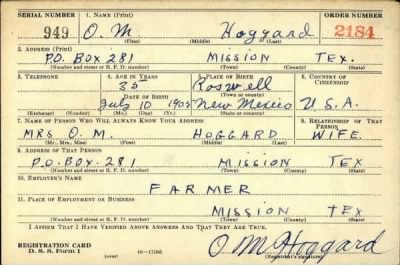 SERIAL NUMBER 1. NAME (Print) ORDER NUMBER
949 O. M. Hoggard 2184
(First) (Middle) (Last)
2. ADDRESS (Print)
P.O. BOX 281 MISSION TEX.
(Number and street or R. F. D. number) (Town) (County) (State)
3. TELEPHONE 4. AGE IN YEARS 5. PLACE OF BIRTH 6. COUNTRY OF CITIZENSHIP
35 Roswell
DATE OF BIRTH (Town or county)
July 10 1905 New Mexico U.S.A.
(Exchange) (Number) (Mo.) (Day) (Yr.) (State or country)
7. NAME OF PERSON WHO WILL ALWAYS KNOW YOUR ADDRESS 8. RELATIONSHIP OF THAT PERSON
MRS O. M. HOGGARD WIFE
(Mr., Mrs., Miss) (First) (Middle) (Last)
9. ADDRESS OF THAT PERSON
P.O. BOX. 281 MISSION TEX
(Number and street or R. F. D. number) (Town) (County) (State)
10. EMPLOYER'S NAME
FARMER
11. PLACE OF EMPLOYMENT OR BUSINESS
MISSION TEX
(Number and street or R. F. D. number) (Town) (County) (State)
I AFFIRM THAT I HAVE VERIFIED ABOVE ANSWERS AND THAT THEY ARE TRUE.
REGISTRATION CARD
D. S. S. Form 1 (over) 16—17105 O M Hoggard
(Registrant's signature)